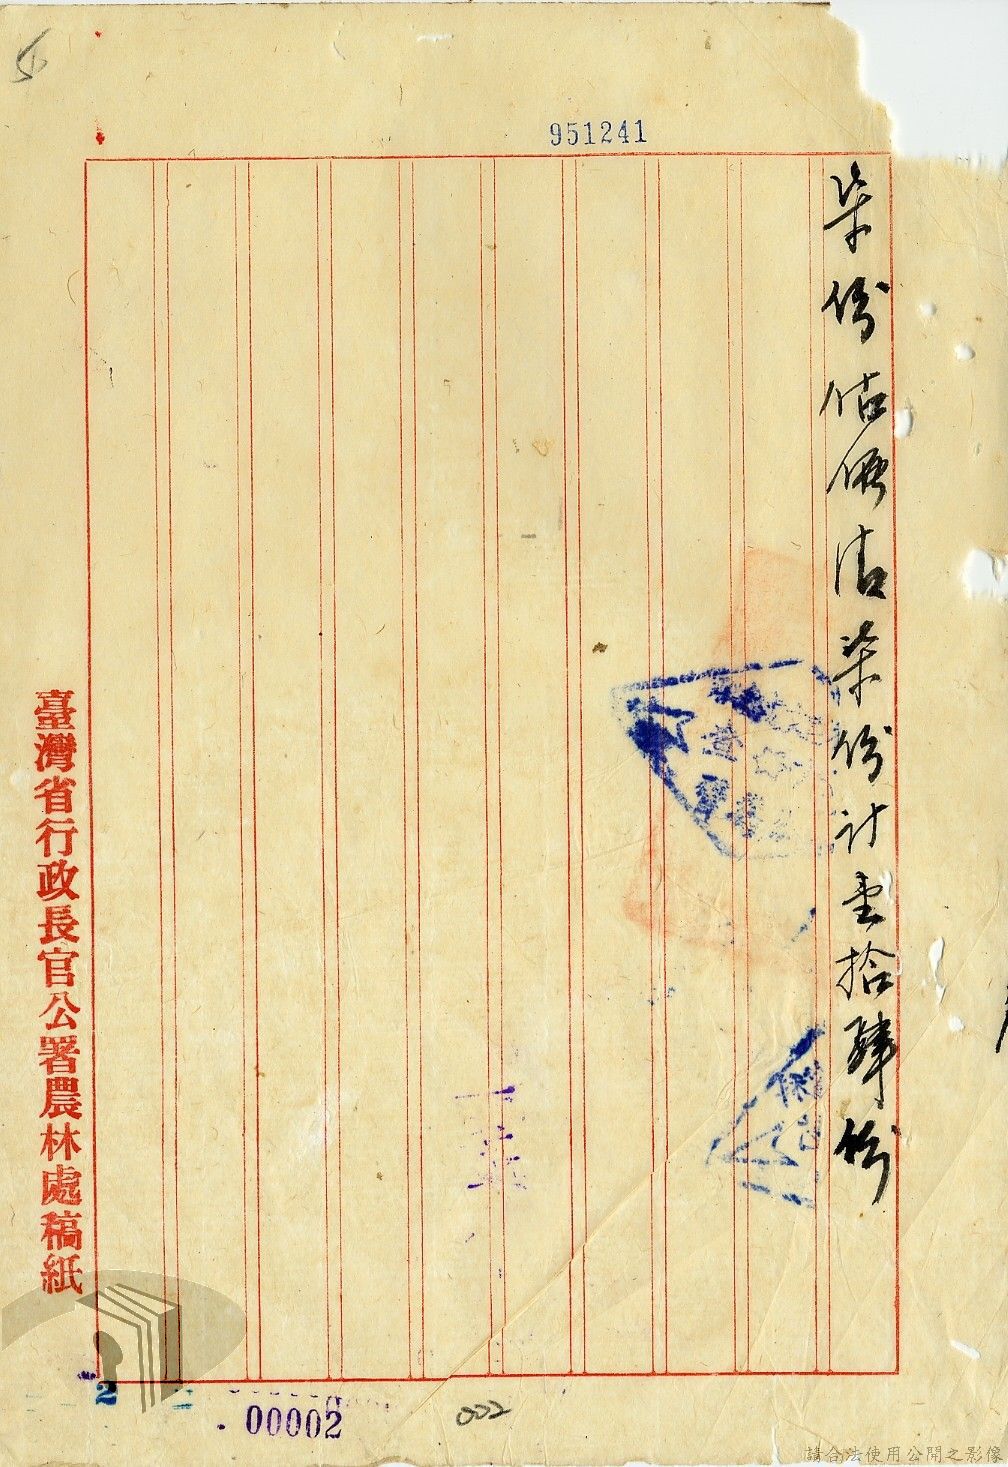 951241
柒份估價清單柒份計壹拾肆份
臺灣省行政長官公署農林處稿紙
2
00002
002
請合法使用公開之影像